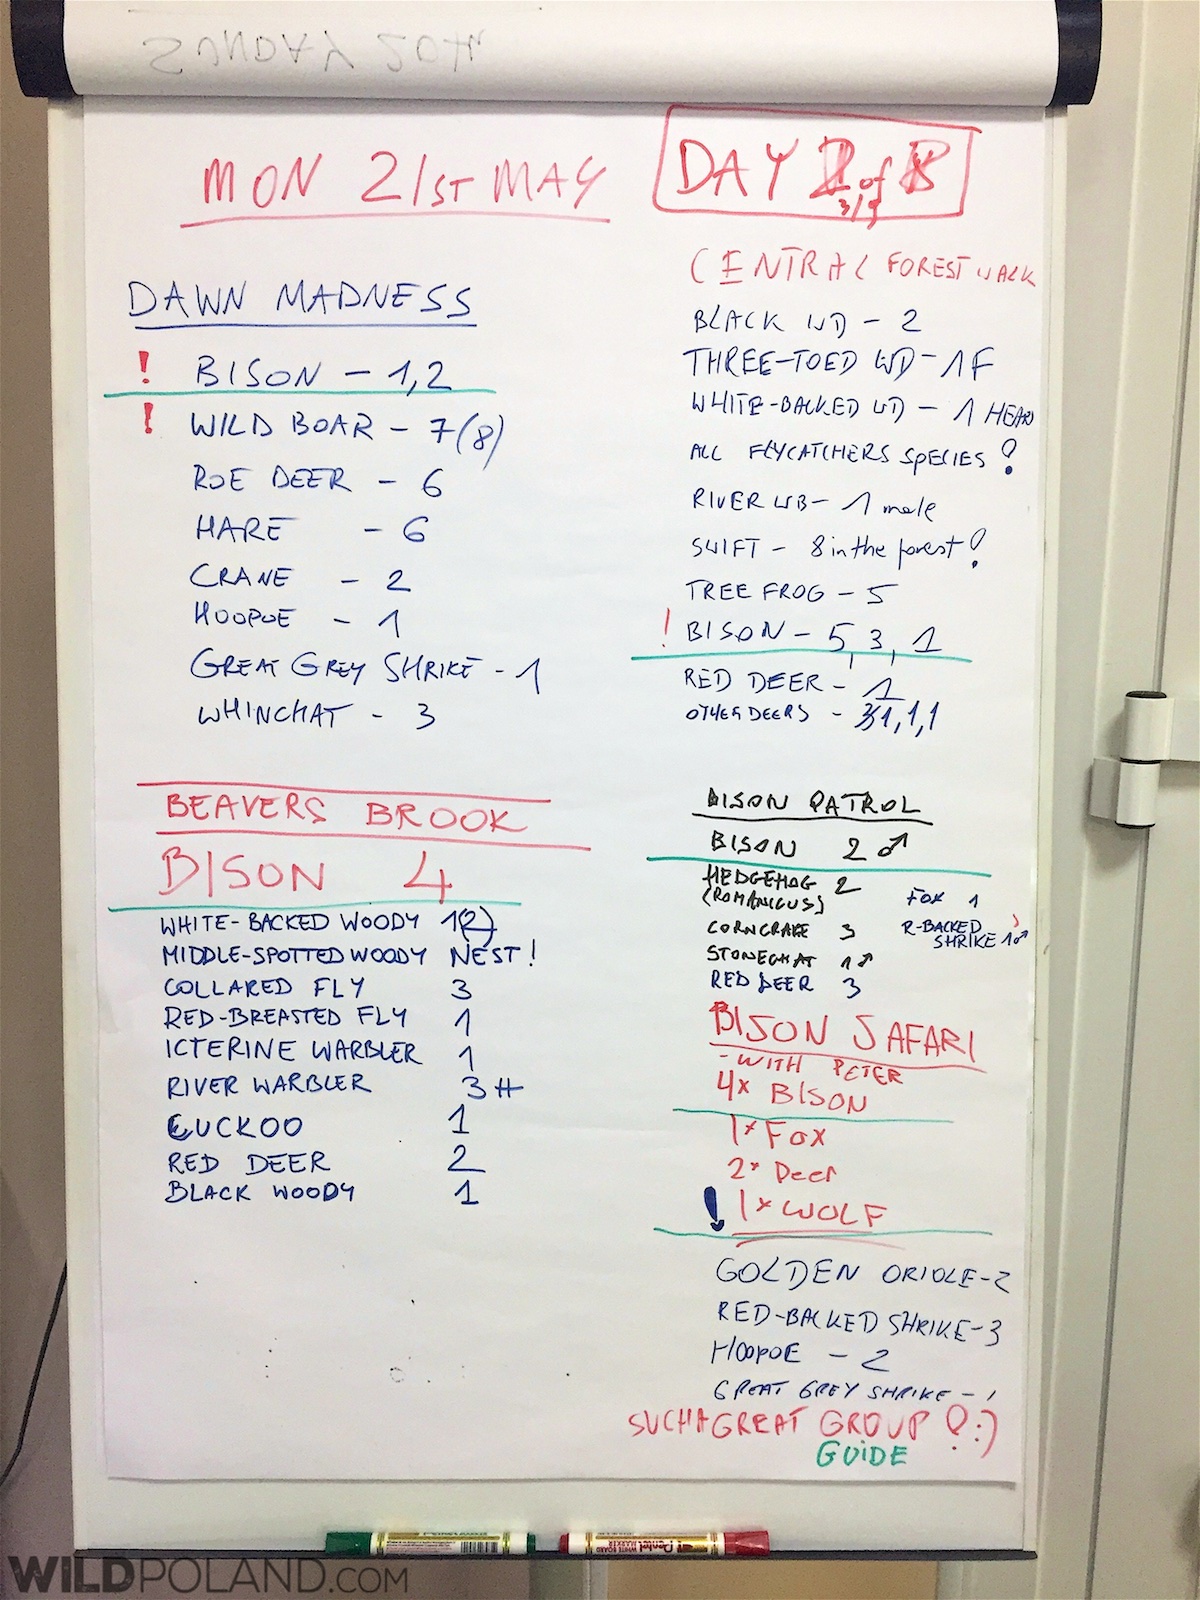 SUNDAY 20TH
MON 21ST MAY
DAY of
3/9
DAWN MADNESS
! BISON - 1,2
! WILD BOAR - 7(8)
ROE DEER - 6
HARE - 6
CRANE - 2
HOOPOE - 1
GREAT GREY SHRIKE - 1
WHINCHAT - 3
CENTRAL FOREST WALK
BLACK WD - 2
THREE-TOED WD - 1F
WHITE-BACKED WD - 1 HEARD
ALL FLYCATCHERS SPECIES !
RIVER WB - 1 male
SWIFT - 8 in the forest !
TREE FROG - 5
! BISON - 5, 3, 1
RED DEER - 1
OTHER DEERS - 1,1,1
BEAVERS BROOK
BISON 4
WHITE-BACKED WOODY 1(2)
MIDDLE-SPOTTED WOODY NEST !
COLLARED FLY 3
RED-BREASTED FLY 1
ICTERINE WARBLER 1
RIVER WARBLER 3 H
CUCKOO 1
RED DEER 2
BLACK WOODY 1
BISON PATROL
BISON 2 ♂
HEDGEHOG 2
(ROMANICUS)
CORNCRAKE 3
STONECHAT 1♂
RED DEER 3
FOX 1
R-BACKED
SHRIKE 1♂
BISON SAFARI
- WITH PETER
4x BISON
1x FOX
2x Deer
! 1x WOLF
GOLDEN ORIOLE - 2
RED-BACKED SHRIKE - 3
HOOPOE - 2
GREAT GREY SHRIKE - 1
SUCH A GREAT GROUP ! :)
GUIDE
Pentel
WHITE BOARD
MARKER
WILDPOLAND.COM